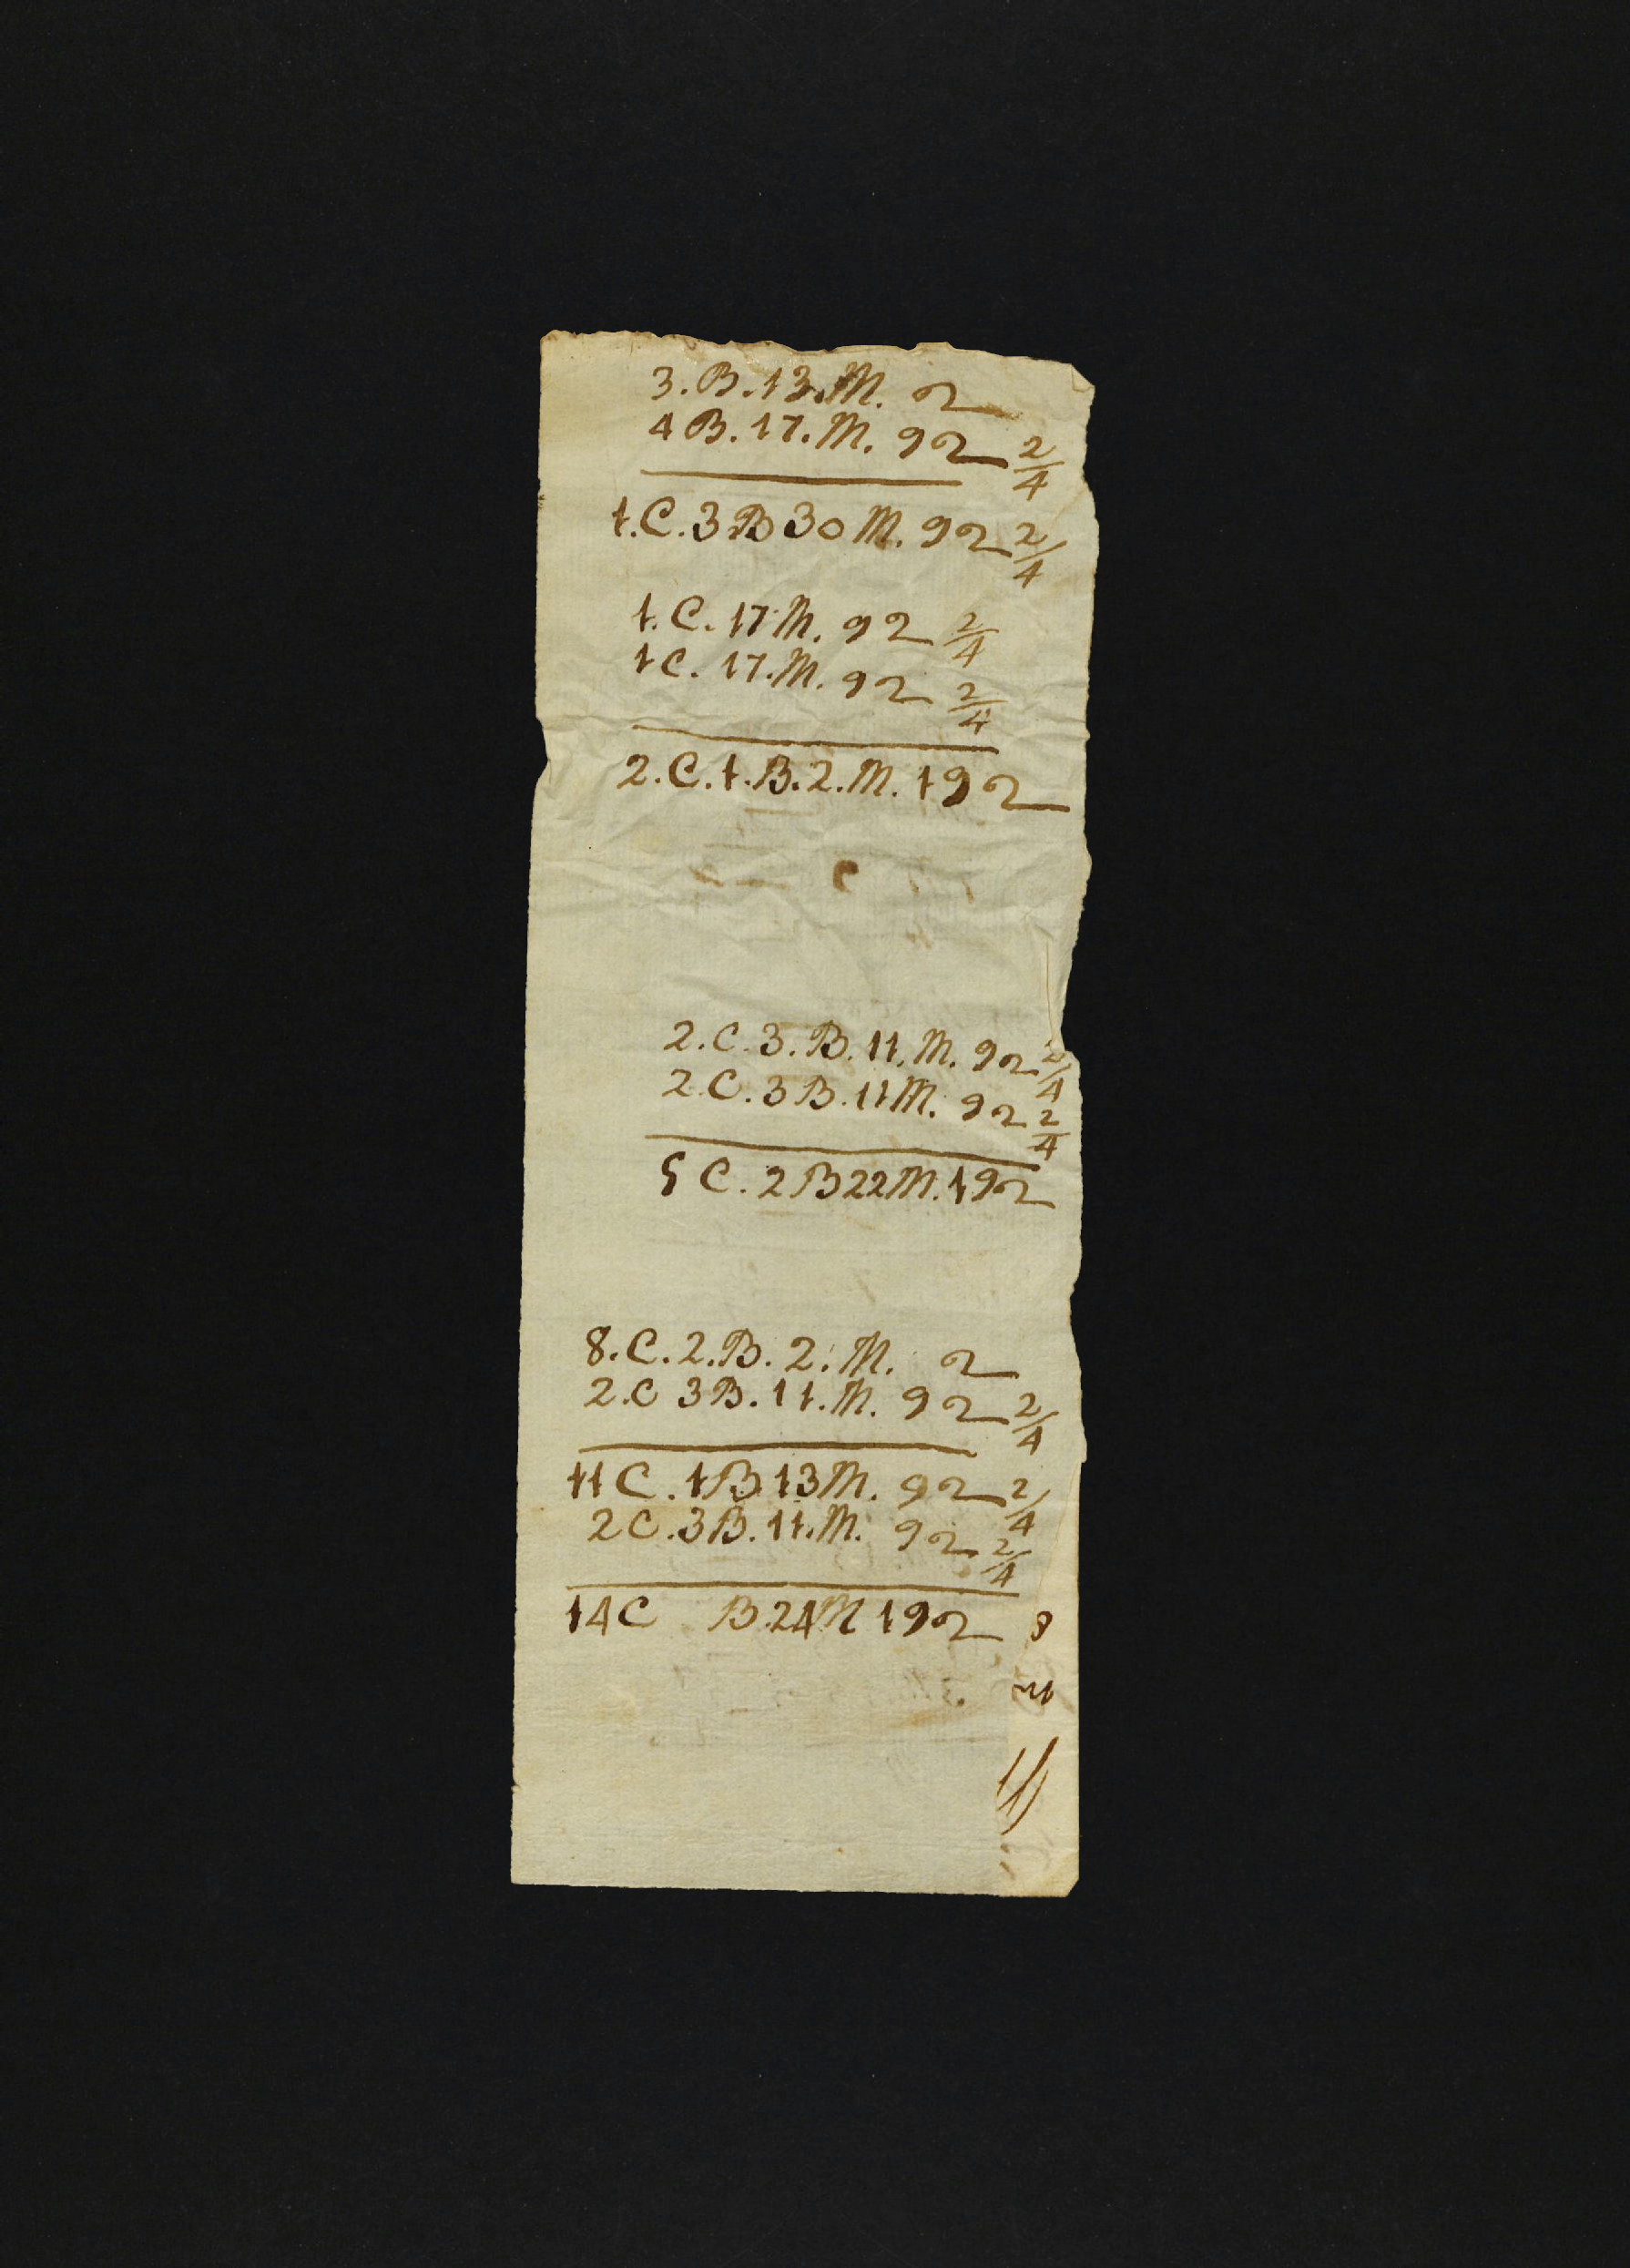 3.B.13.M. 2
4B.17.M. 92 2/4
1.C.3B30M. 92 2/4
1.C.17M. 92 2/4
1C.17.M. 92 2/4
2.C.1.B.2.M.192
2.C.3.B.11.M. 92 2/4
2.C.3B.11M. 92 2/4
5C.2B22M.192
8.C.2.B.2.M. 2
2.C3B.11.M. 92 2/4
11C.1B13M. 92 2/4
2C.3B.11.M. 92 2/4
14C B24M192 8